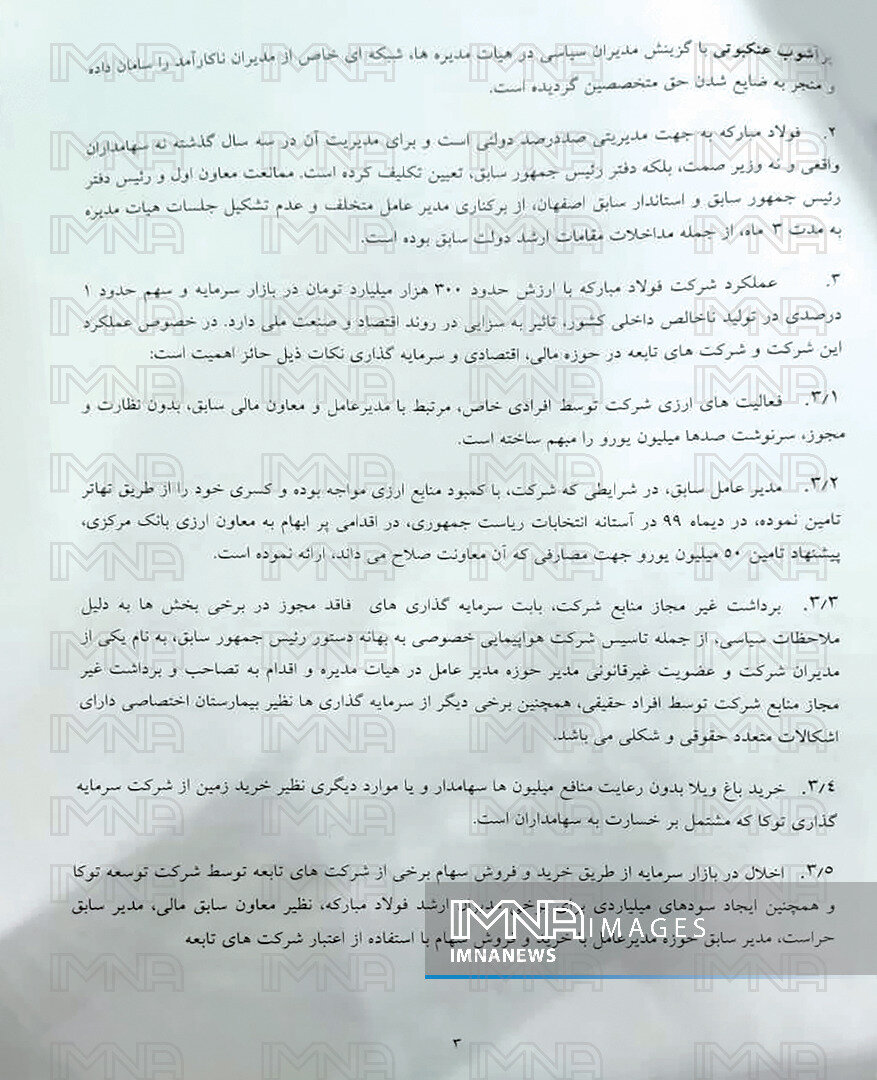 پرآشوب عنکبوتی با گزینش مدیران سیاسی در هیات مدیره ها، شبکه ای خاص از مدیران ناکارآمد را سامان داده
و منجر به ضایع شدن حق متخصصین گردیده است.
۲. فولاد مبارکه به جهت مدیریتی صددرصد دولتی است و برای مدیریت آن در سه سال گذشته نه سهامداران
واقعی و نه وزیر صمت، بلکه دفتر رئیس جمهور سابق، تعیین تکلیف کرده است. ممانعت معاون اول و رئیس دفتر
رئیس جمهور سابق و استاندار سابق اصفهان، از برکناری مدیر عامل متخلف و عدم تشکیل جلسات هیات مدیره
به مدت ۳ ماه، از جمله مداخلات مقامات ارشد دولت سابق بوده است.
۳. عملکرد شرکت فولاد مبارکه با ارزش حدود ۳۰۰ هزار میلیارد تومان در بازار سرمایه و سهم حدود ۱
درصدی در تولید ناخالص داخلی کشور، تاثیر به سزایی در روند اقتصاد و صنعت ملی دارد. در خصوص عملکرد
این شرکت و شرکت های تابعه در حوزه مالی، اقتصادی و سرمایه گذاری نکات ذیل حائز اهمیت است:
۳/۱. فعالیت های ارزی شرکت توسط افرادی خاص، مرتبط با مدیرعامل و معاون مالی سابق، بدون نظارت و
مجوز، سرنوشت صدها میلیون یورو را مبهم ساخته است.
۳/۲. مدیر عامل سابق، در شرایطی که شرکت، با کمبود منابع ارزی مواجه بوده و کسری خود را از طریق تهاتر
تامین نموده، در دیماه ۹۹ در آستانه انتخابات ریاست جمهوری، در اقدامی پر ابهام به معاون ارزی بانک مرکزی،
پیشنهاد تامین ۵۰ میلیون یورو جهت مصارفی که آن معاونت صلاح می داند، ارائه نموده است.
۳/۳. برداشت غیر مجاز منابع شرکت، بابت سرمایه گذاری های فاقد مجوز در برخی بخش ها به دلیل
ملاحظات سیاسی، از جمله تاسیس شرکت هواپیمایی خصوصی به بهانه دستور رئیس جمهور سابق، به نام یکی از
مدیران شرکت و عضویت غیرقانونی مدیر حوزه مدیر عامل در هیات مدیره و اقدام به تصاحب و برداشت غیر
مجاز منابع شرکت توسط افراد حقیقی، همچنین برخی دیگر از سرمایه گذاری ها نظیر بیمارستان اختصاصی دارای
اشکالات متعدد حقوقی و شکلی می باشد.
۳/٤. خرید باغ ویلا بدون رعایت منافع میلیون ها سهامدار و یا موارد دیگری نظیر خرید زمین از شرکت سرمایه
گذاری توکا که مشتمل بر خسارت به سهامداران است.
۳/۵. اخلال در بازار سرمایه از طریق خرید و فروش سهام برخی از شرکت های تابعه توسط شرکت توسعه توکا
و همچنین ایجاد سودهای میلیاردی برای برخی ارشد فولاد مبارکه، نظیر معاون سابق مالی، مدیر سابق
حراست، مدیر سابق حوزه مدیرعامل با خرید و فروش سهام با استفاده از اعتبار شرکت های تابعه
IMNA IMAGES
IMNANEWS
۳